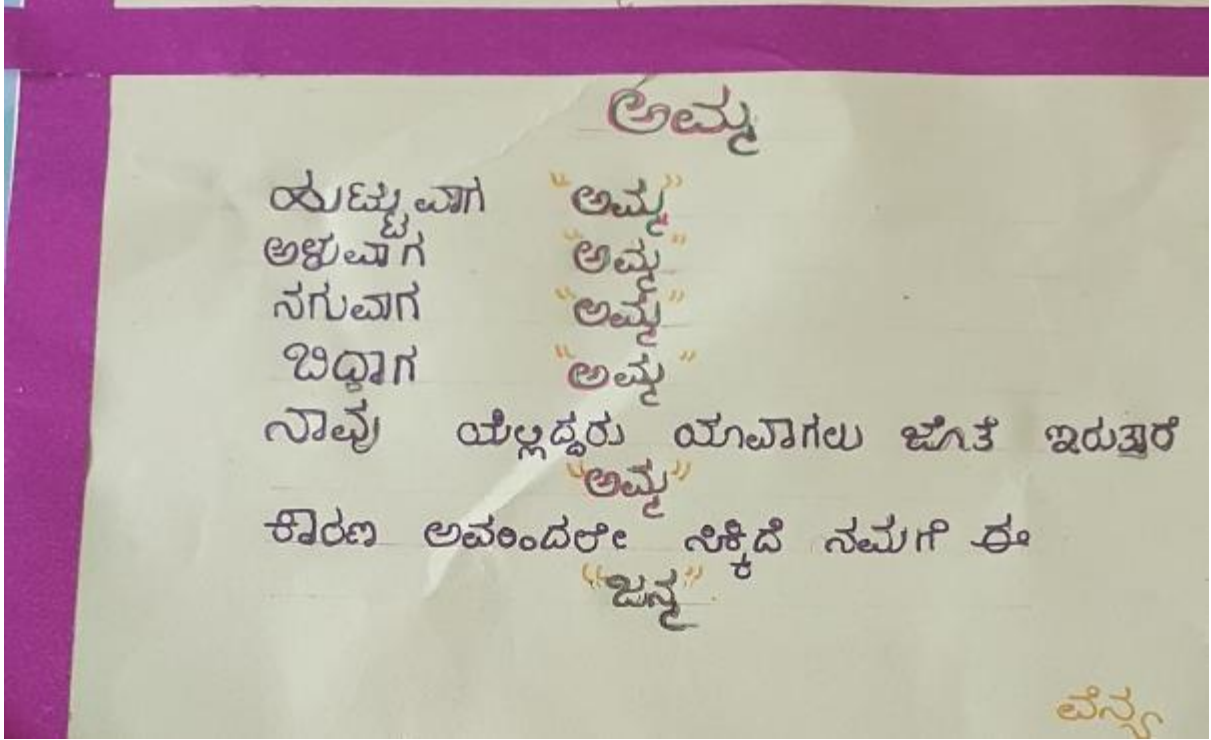 ಅಮ್ಮ
ಹುಟ್ಟುವಾಗ "ಅಮ್ಮ"
ಅಳುವಾಗ "ಅಮ್ಮ"
ನಗುವಾಗ "ಅಮ್ಮ"
ಬಿದ್ದಾಗ "ಅಮ್ಮ"
ನಾವು ಯೆಲ್ಲದ್ದರು ಯಾವಾಗಲು ಜೊತೆ ಇರುತ್ತಾರೆ
"ಅಮ್ಮ"
ಕಾರಣ ಅವರಿಂದಲೇ ಸಿಕ್ಕಿದೆ ನಮಗೆ ಈ
"ಜನ್ಮ"
ವೆನ್ಯ